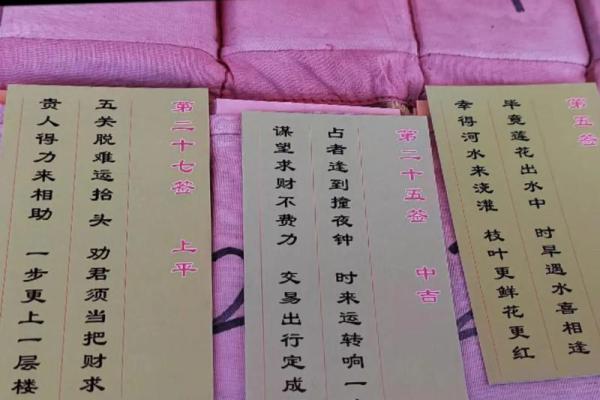 第二十七签 上平
五关脱难运抬头 劝君须当把财求
贵人得力来相助 一步更上一层楼
第二十五签 中吉
占者逢到撞夜钟 时来运转响一
谋望求财不费力 交易出行定成
第五签
毕竟莲花出水中 时早遇水喜相逢
幸得河水来浇灌 枝叶更鲜花更红